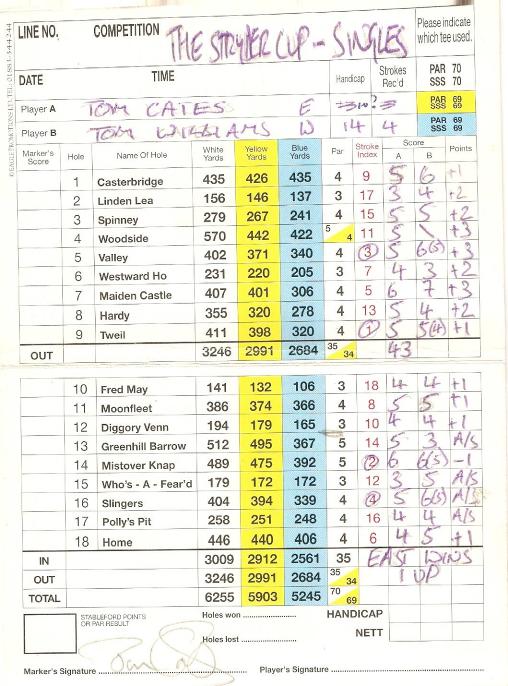 LINE NO. COMPETITION THE STRYDER CUP - SINGLES Please indicate which tee used.
DATE TIME Handicap Strokes Rec'd PAR 70 SSS 70
Player A TOM CATES E PAR 69 SSS 69
Player B TOM WILLIAMS W 14 4 PAR 69 SSS 69
Marker's Score Hole Name Of Hole White Yards Yellow Yards Blue Yards Par Stroke Index Score A B Points
1 Casterbridge 435 426 435 4 9 5 6 +1
2 Linden Lea 156 146 137 3 17 3 4 +2
3 Spinney 279 267 241 4 15 5 5 +2
4 Woodside 570 442 422 5 4 11 5 \ +3
5 Valley 402 371 340 4 3 5 6(5) +3
6 Westward Ho 231 220 205 3 7 4 3 +2
7 Maiden Castle 407 401 306 4 5 6 7 +3
8 Hardy 355 320 278 4 13 5 4 +2
9 Tweil 411 398 320 4 1 5 5(4) +1
OUT 3246 2991 2684 35 34 43
10 Fred May 141 132 106 3 18 4 4 +1
11 Moonfleet 386 374 366 4 8 5 5 +1
12 Diggory Venn 194 179 165 3 10 4 4 +1
13 Greenhill Barrow 512 495 367 5 14 5 3 A/S
14 Mistover Knap 489 475 392 5 2 6 6(5) -1
15 Who's - A - Fear'd 179 172 172 3 12 3 5 A/S
16 Slingers 404 394 339 4 4 5 6(5) A/S
17 Polly's Pit 258 251 248 4 16 4 4 A/S
18 Home 446 440 406 4 6 4 5 +1
IN 3009 2912 2561 35 EAST WINS
OUT 3246 2991 2684 35 34 1 UP
TOTAL 6255 5903 5245 70 69
STABLEFORD POINTS OR PAR RESULT Holes won HANDICAP
Holes lost NETT
Marker's Signature Player's Signature